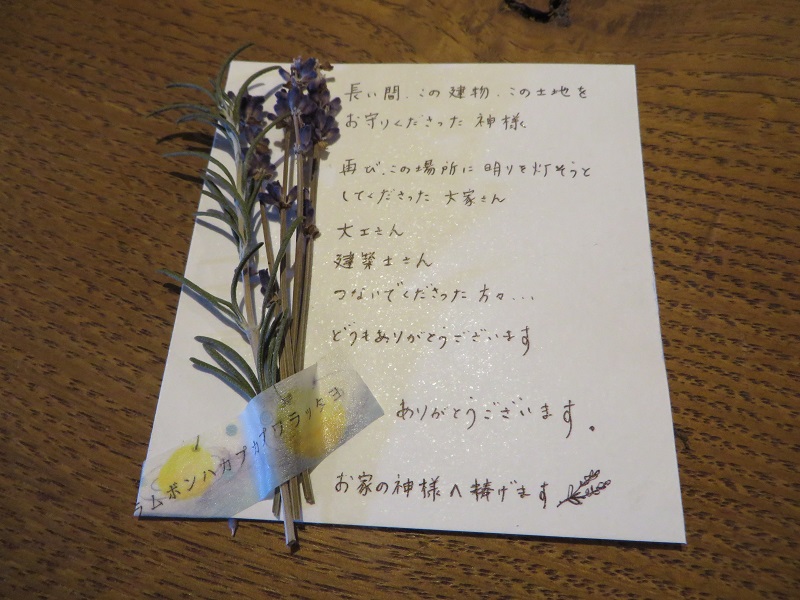 長い間、この建物、この土地を
お守りくださった神様
再び、この場所に明りを灯そうと
してくださった大家さん
大工さん
建築士さん
つないでくださった方々...
どうもありがとうございます
ありがとうございます。
お家の神様へ捧げます
ラムボンハカプカプワラッタヨ